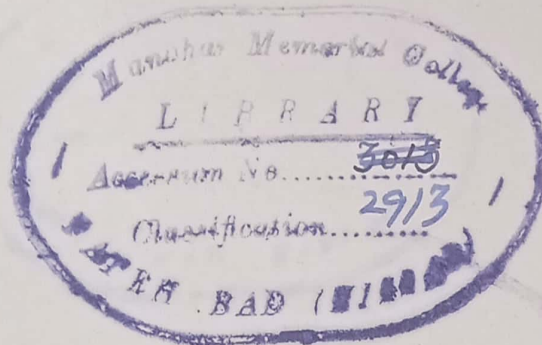 Manohar Memorial College
LIBRARY
Accession No. .............. 3013
2913
Classification ..............